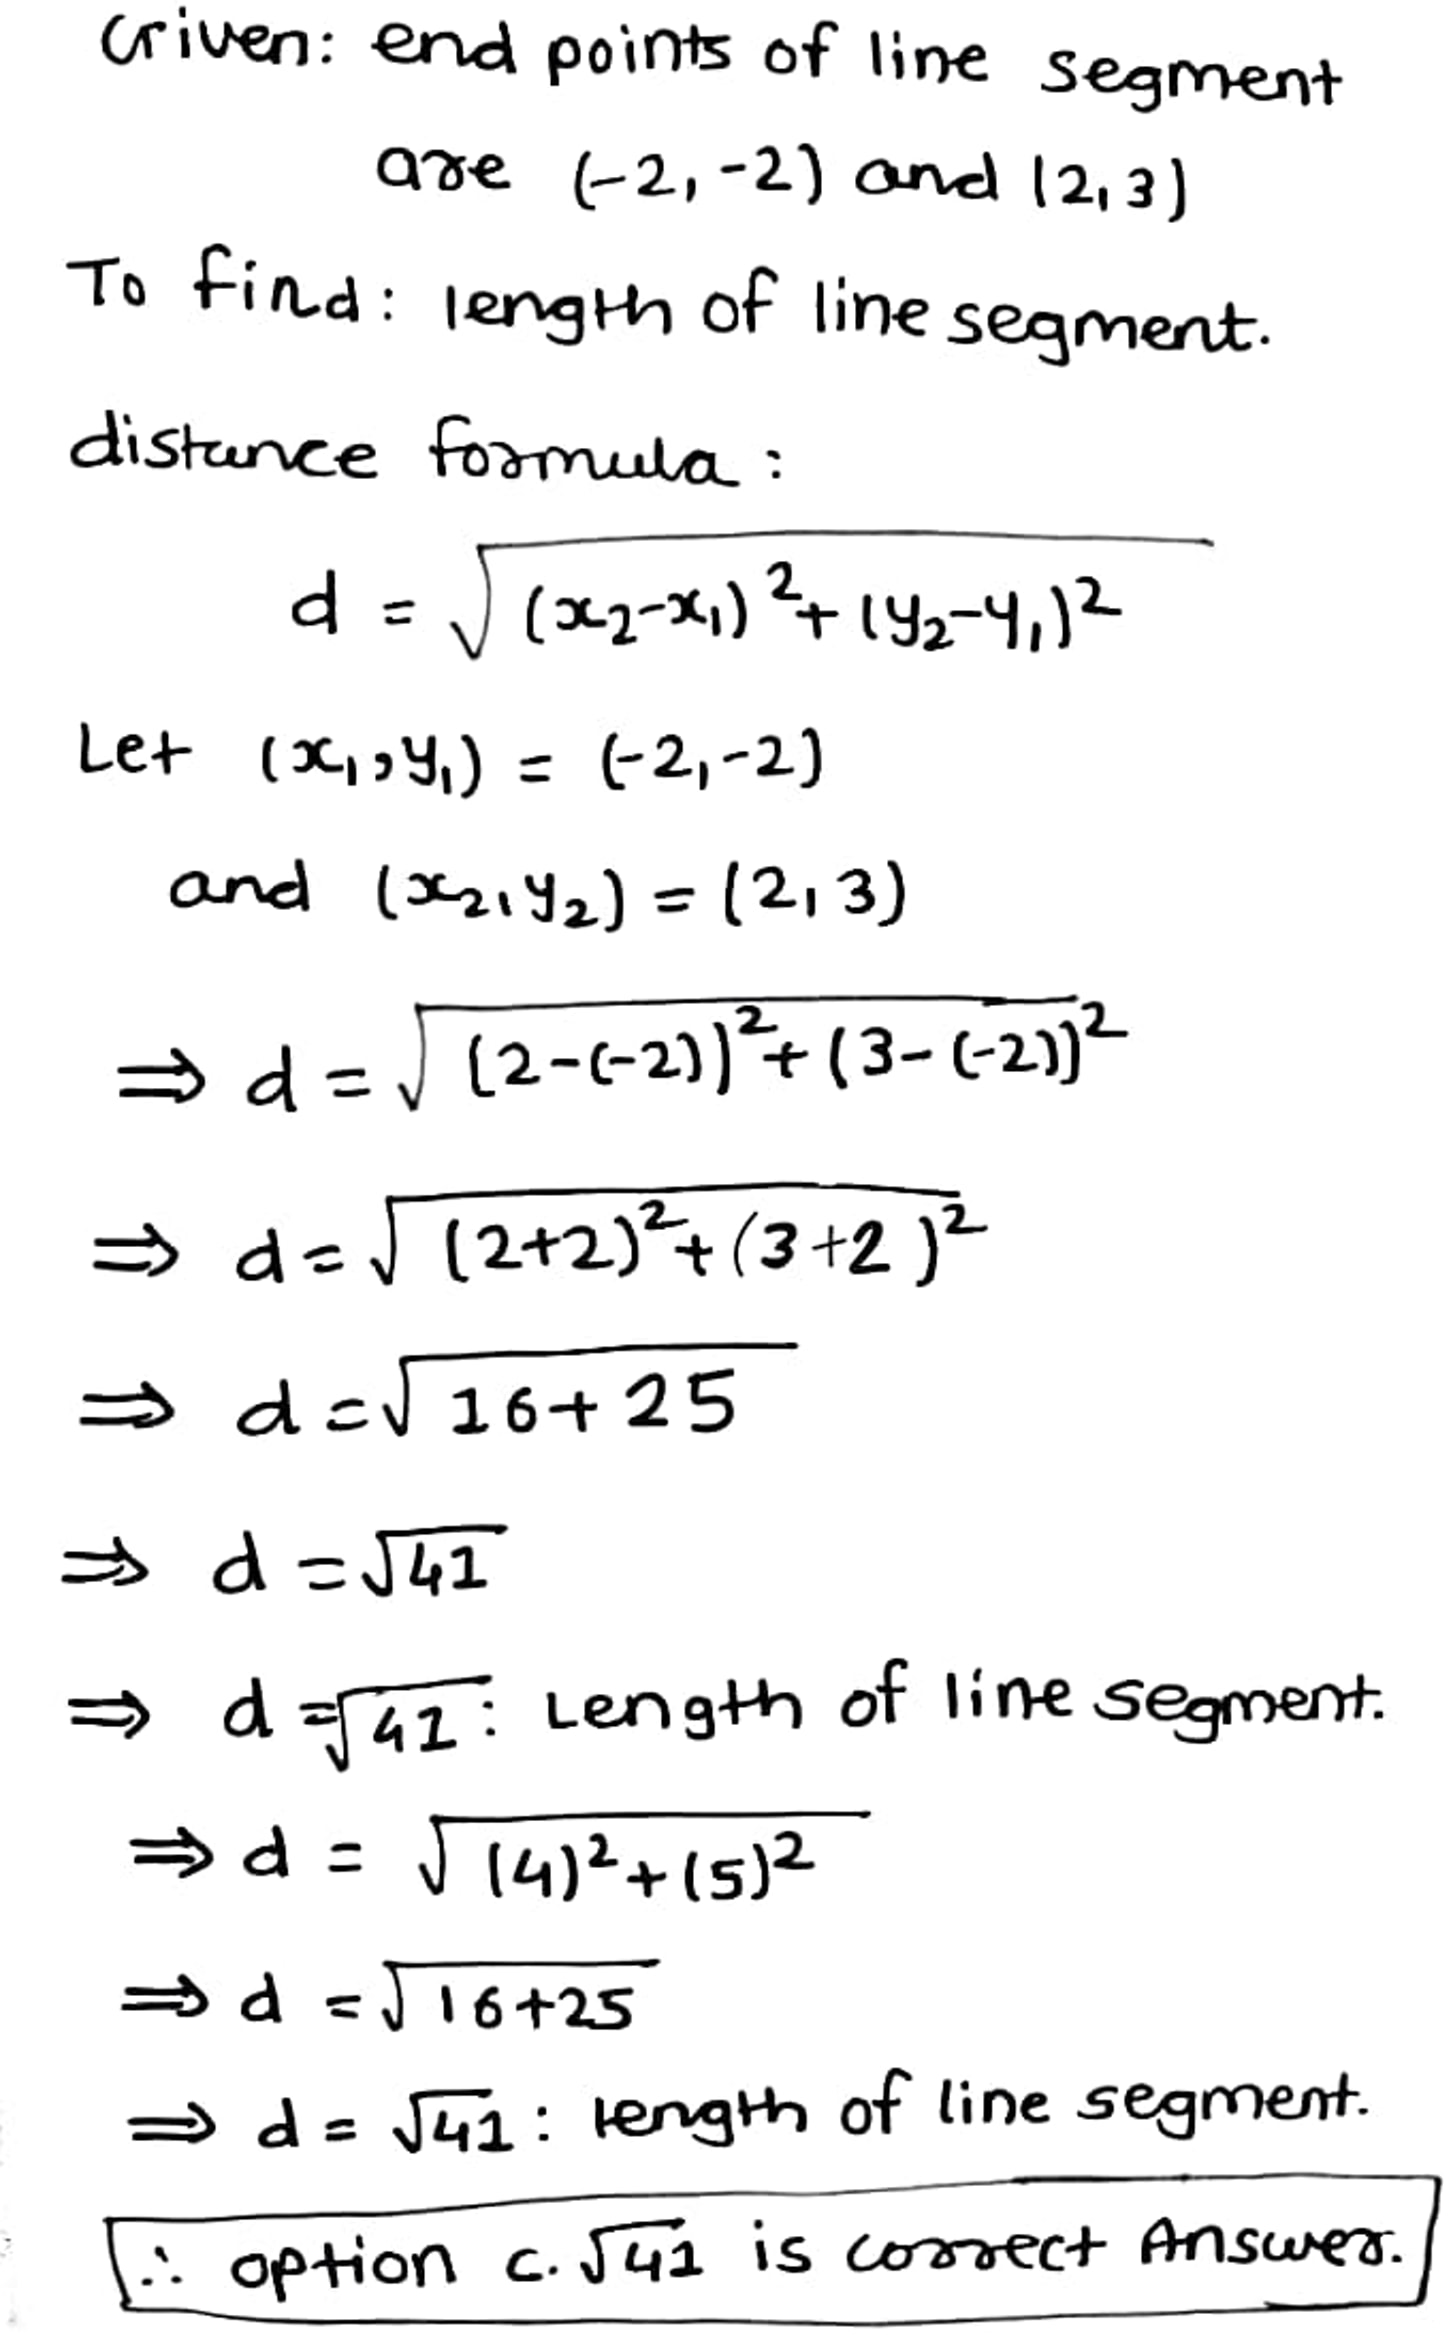 Given: end points of line segment
are (-2,-2) and (2,3)
To find: length of line segment.
distance formula:
d = √(x₂-x₁)²+(y₂-y₁)²
Let (x₁,y₁) = (-2,-2)
and (x₂,y₂) = (2,3)
⇒ d = √(2-(-2))²+(3-(-2))²
⇒ d = √(2+2)²+(3+2)²
⇒ d = √16+25
⇒ d = √41
⇒ d = √41: Length of line segment.
⇒ d = √(4)²+(5)²
⇒ d = √16+25
⇒ d = √41: length of line segment.
∴ option c. √41 is correct Answer.